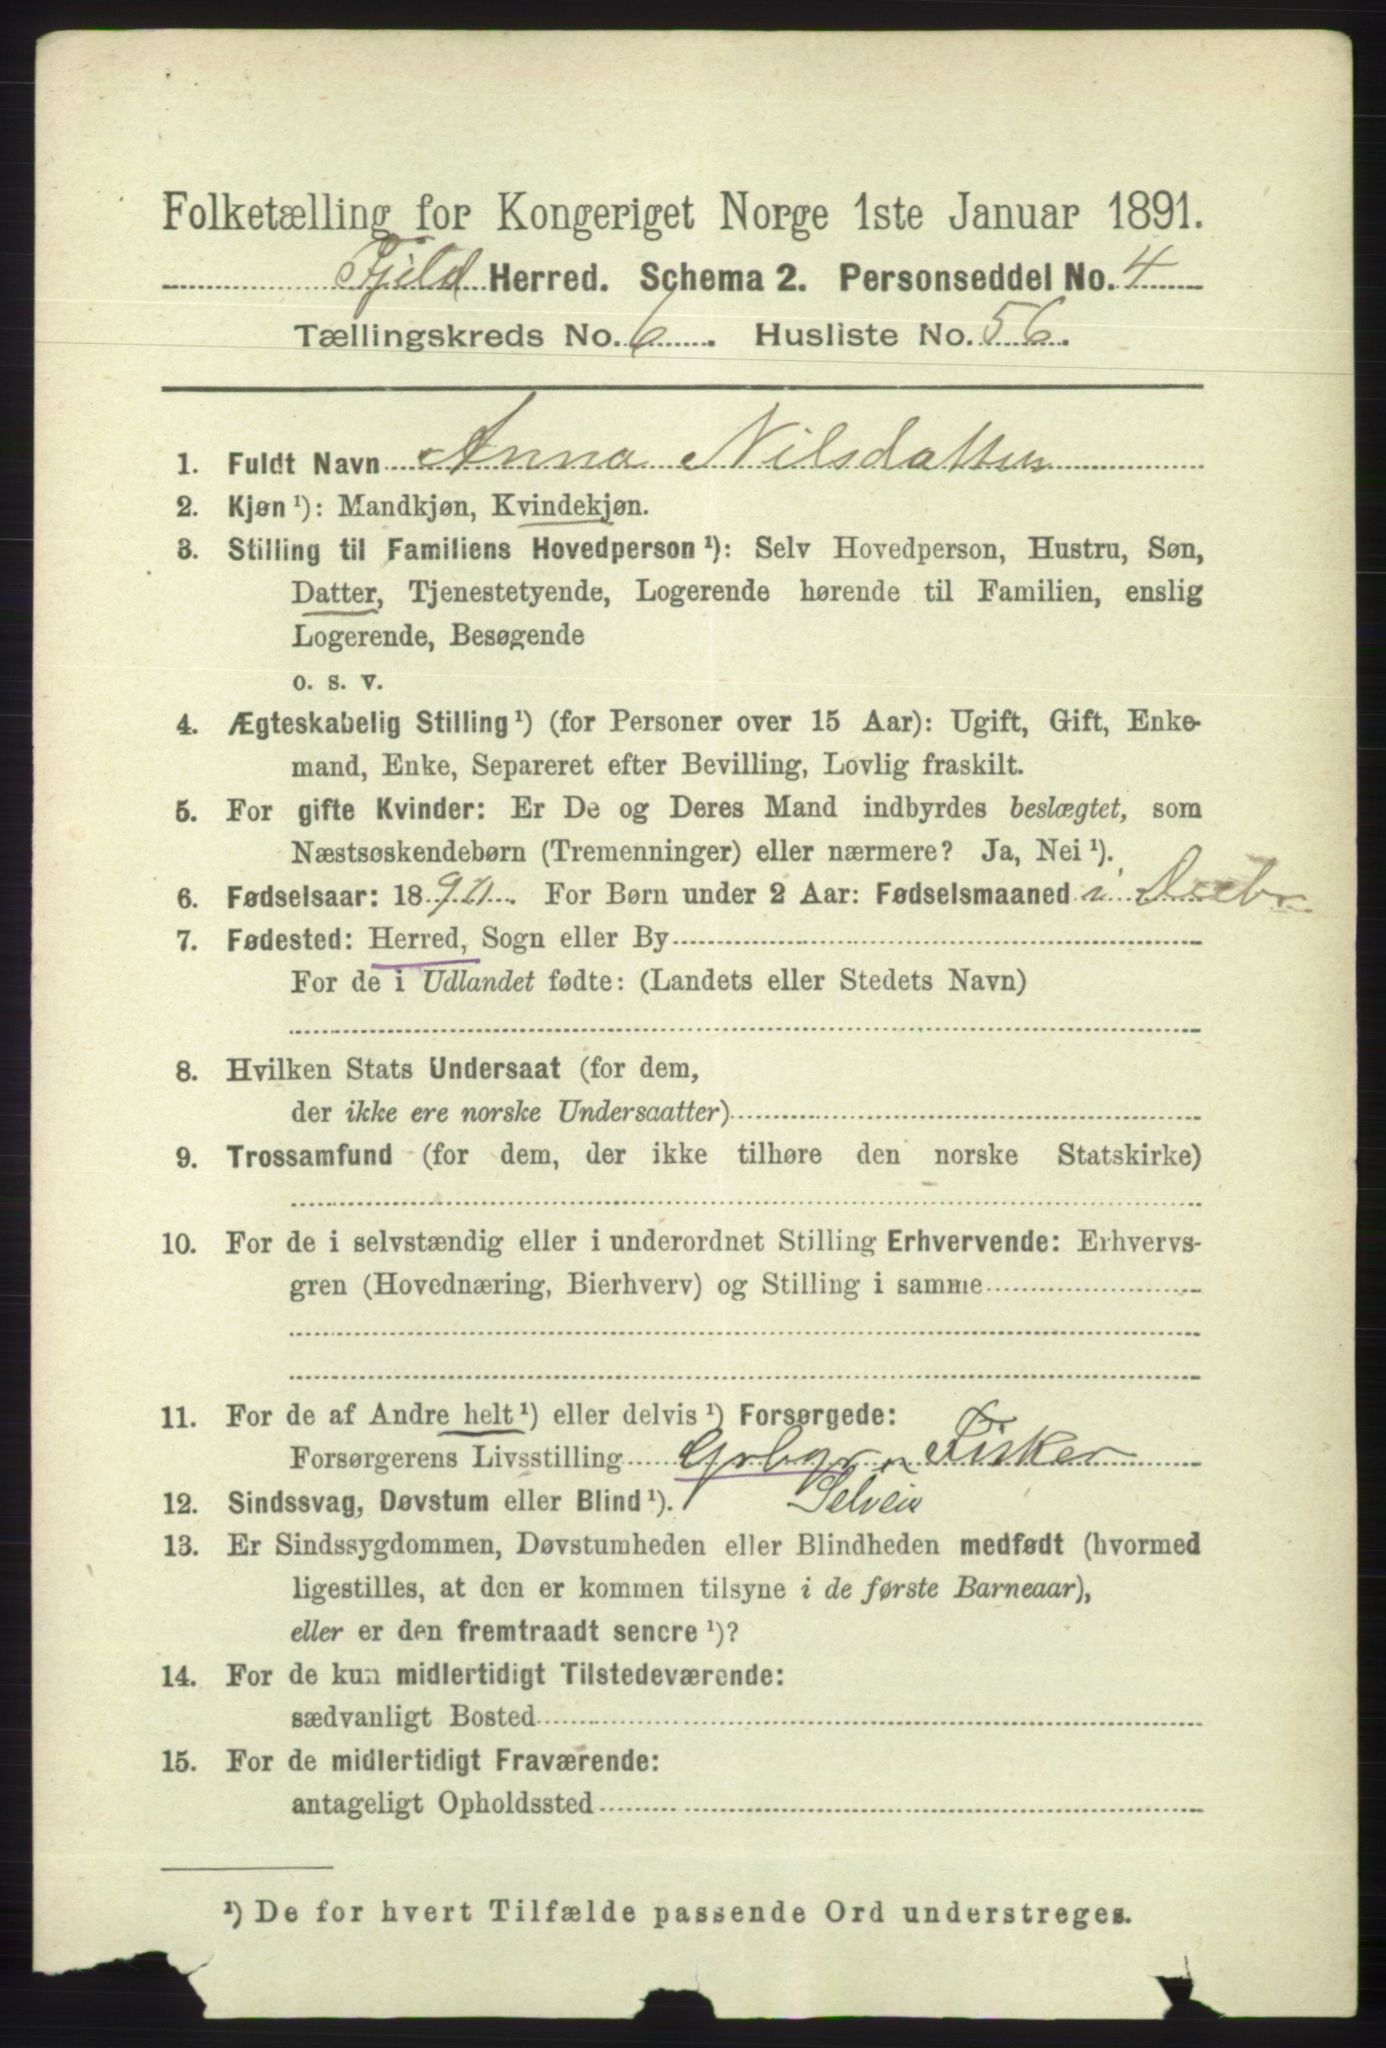 Folketælling for Kongeriget Norge 1ste Januar 1891.
Fjeld Herred. Schema 2. Personseddel No. 4
Tællingskreds No. 6. Husliste No. 56.
1. Fuldt Navn Anna Nilsdatter
2. Kjøn ¹): Mandkjøn, Kvindekjøn.
3. Stilling til Familiens Hovedperson ¹): Selv Hovedperson, Hustru, Søn,
Datter, Tjenestetyende, Logerende hørende til Familien, enslig
Logerende, Besøgende
o. s. v.
4. Ægteskabelig Stilling ¹) (for Personer over 15 Aar): Ugift, Gift, Enke-
mand, Enke, Separeret efter Bevilling, Lovlig fraskilt.
5. For gifte Kvinder: Er De og Deres Mand indbyrdes beslægtet, som
Næstsøskendebørn (Tremenninger) eller nærmere? Ja, Nei ¹).
6. Fødselsaar: 18 For Børn under 2 Aar: Fødselsmaaned i Decbr
7. Fødested: Herred, Sogn eller By
For de i Udlandet fødte: (Landets eller Stedets Navn)
8. Hvilken Stats Undersaat (for dem,
der ikke ere norske Undersaatter)
9. Trossamfund (for dem, der ikke tilhøre den norske Statskirke)
10. For de i selvstændig eller i underordnet Stilling Erhvervende: Erhvervs-
gren (Hovednæring, Bierhverv) og Stilling i samme
11. For de af Andre helt ¹) eller delvis ¹) Forsørgede:
Forsørgerens Livsstilling Grbgr Fisker
12. Sindssvag, Døvstum eller Blind ¹). Selveier
13. Er Sindssygdommen, Døvstumheden eller Blindheden medfødt (hvormed
ligestilles, at den er kommen tilsyne i de første Barneaar),
eller er den fremtraadt senere ¹)?
14. For de kun midlertidigt Tilstedeværende:
sædvanligt Bosted
15. For de midlertidigt Fraværende:
antageligt Opholdssted
¹) De for hvert Tilfælde passende Ord understreges.